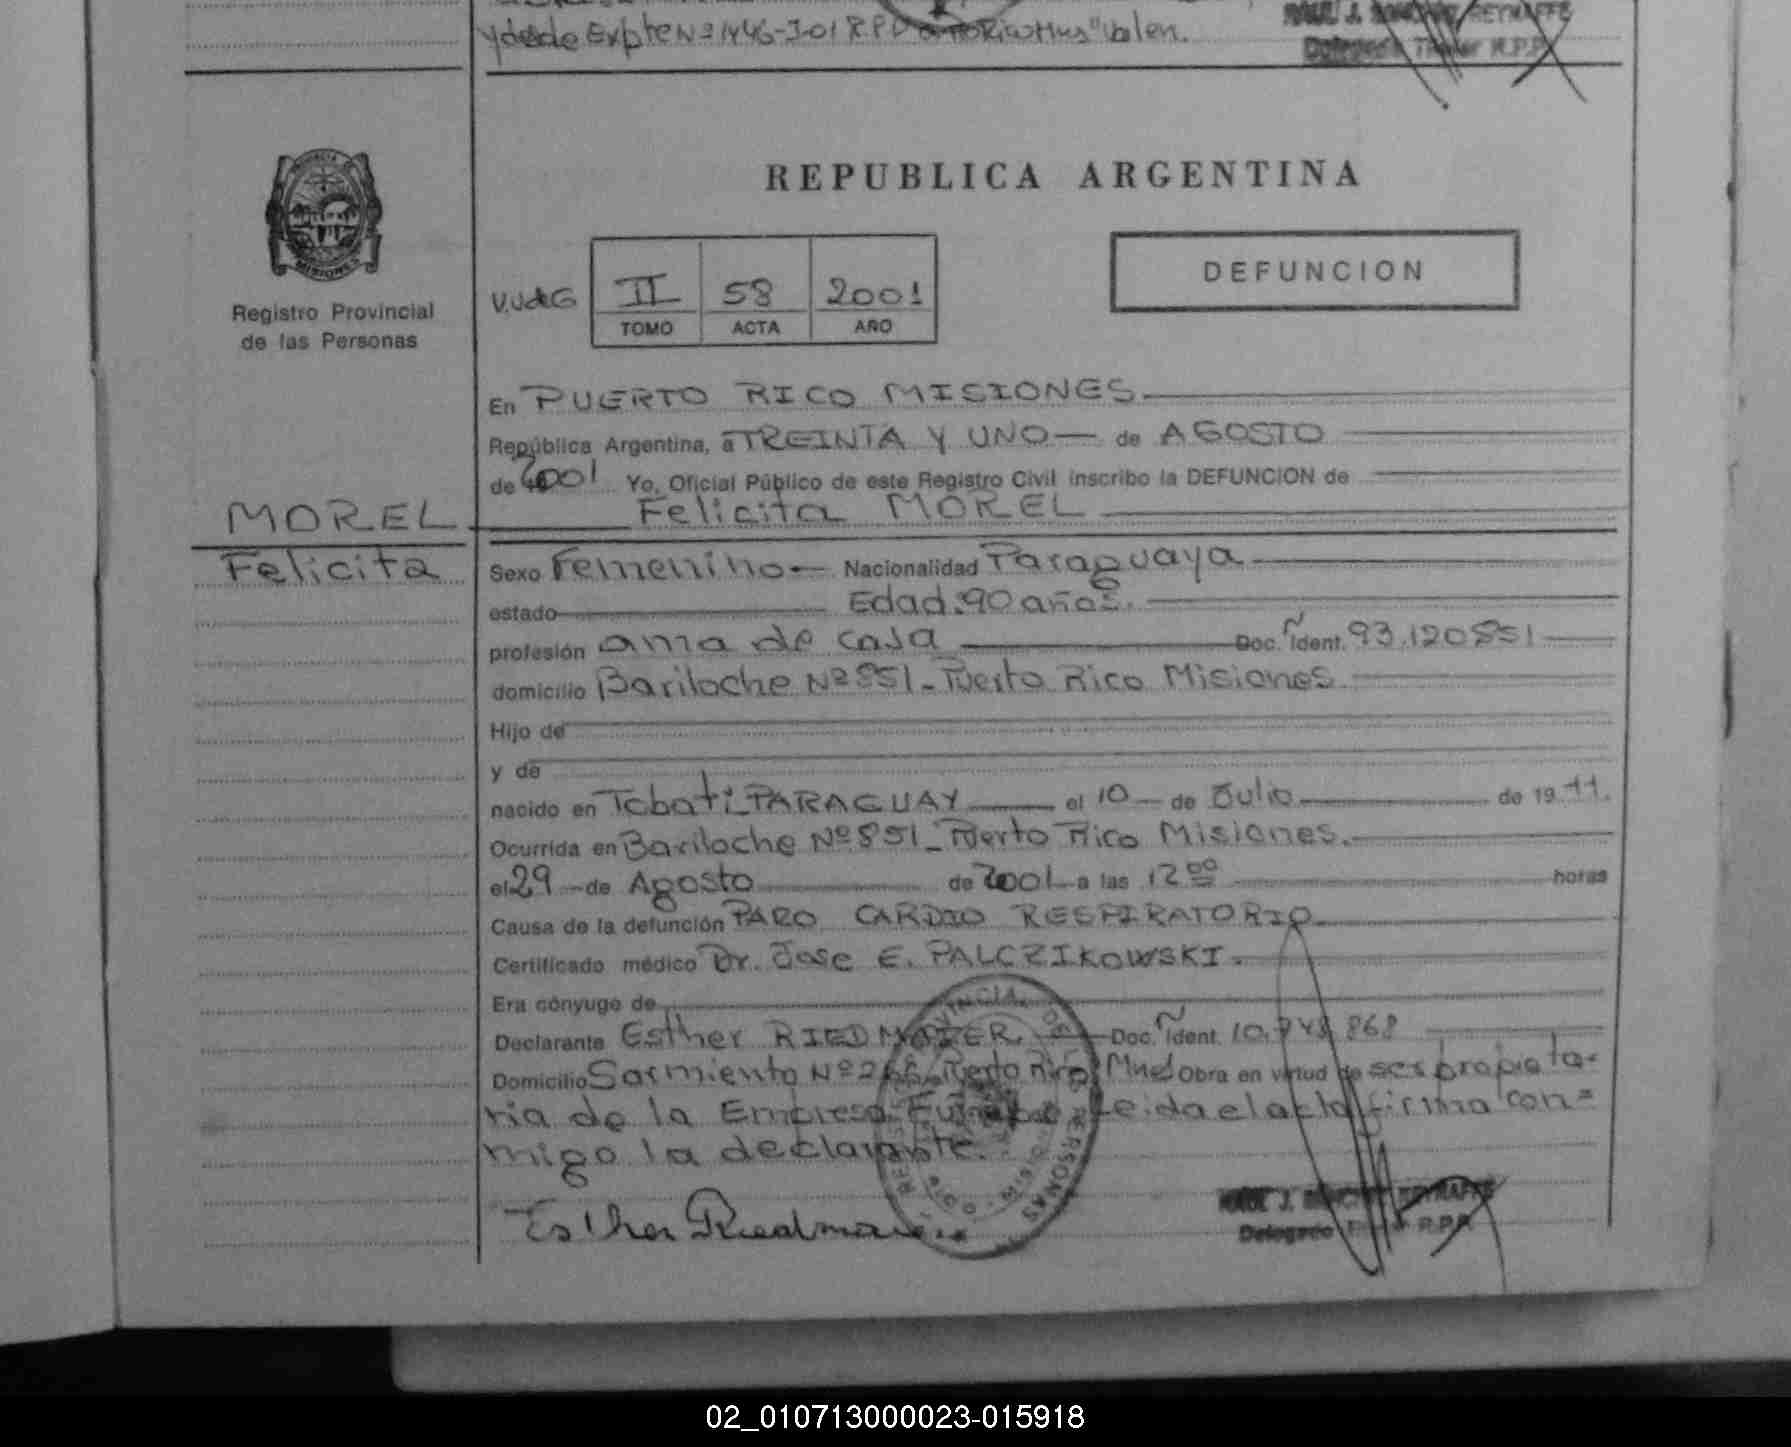 y desde Expte Nº 1446-J-01 R.P.P. Pto Rico Mnes "Valen.
RAUL J. SANCHEZ REYNAFFE
Delegado Titular R.P.P.
PROVINCIA DE
MISIONES
Registro Provincial
de las Personas
REPUBLICA ARGENTINA
II 58 2001
TOMO ACTA AÑO
DEFUNCION
En PUERTO RICO MISIONES
República Argentina, a TREINTA Y UNO de AGOSTO
de 2001 Yo, Oficial Público de este Registro Civil inscribo la DEFUNCION de
MOREL Felicita MOREL
Felicita Sexo Femenino Nacionalidad Paraguaya
estado Edad: 90 años.
profesión ama de casa Doc. Ident. 93.120851
domicilio Bariloche Nº 851 - Puerto Rico Misiones
Hijo de
y de
nacido en Tobati - PARAGUAY el 10 de Julio de 1911.
Ocurrida en Bariloche Nº 851 - Puerto Rico Misiones.
el 29 de Agosto de 2001 a las 12 00 horas
Causa de la defunción PARO CARDIO RESPIRATORIO
Certificado médico Dr. Jose E. PALCZIKOWSKI.
Era cónyuge de
Declarante Esther RIEDMAIER Doc. Ident. 10.748 868
Domicilio Sarmiento Nº Puerto Rico Mnes Obra en virtud de ser propieta-
ria de la Empresa Funebre Leida el acta firma con=
migo la declarante.
Esther Riedmaier
RAUL J. SANCHEZ REYNAFFE
Delegado Titular R.P.P.
02_010713000023-015918